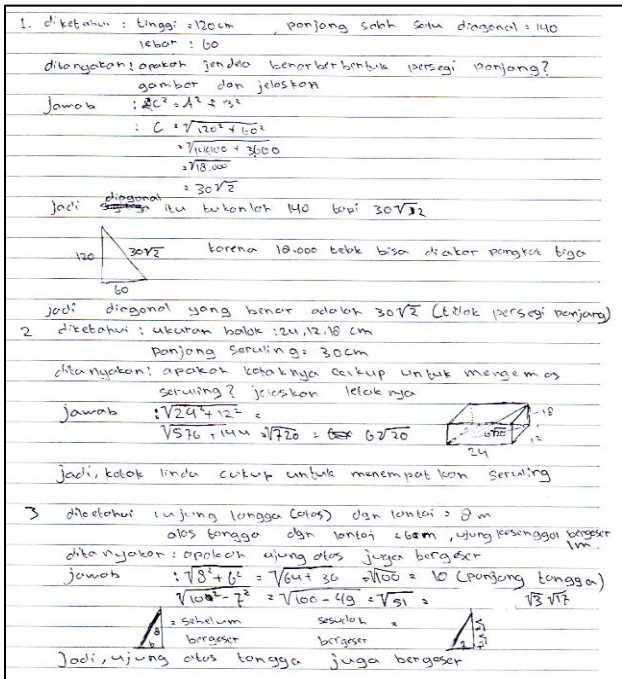 1. diketahui : tinggi = 120 cm , panjang salah satu diagonal : 140
lebar : 60
ditanyakan : apakah jendela benar berbentuk persegi panjang?
gambar dan jelaskan
jawab : C² = A² + B²
: C = √120² + 60²
= √14400 + 3600
= √18.000
= 30√2
jadi diagonal itu bukanlah 140 tapi 30√2
120 30√2 karena 18.000 tidak bisa diakar pangkat tiga
60
jadi diagonal yang benar adalah 30√2 (tidak persegi panjang)
2 diketahui : ukuran balok : 24, 12, 18 cm
panjang seruling = 30 cm
ditanyakan : apakah kotaknya cukup untuk mengemas
seruling? jelaskan letaknya
jawab : √24² + 12² =
√576 + 144 = √720 = 6√20
18
6√20
12
24
jadi, kotak linda cukup untuk menempatkan seruling
3 diketahui : ujung tangga (atas) dgn lantai = 8 m
alas tangga dgn lantai = 6 m, ujung bergeser
1m.
ditanyakan : apakah ujung atas juga bergeser
jawab : √8² + 6² = √64 + 36 = √100 = 10 (panjang tangga)
√10² - 7² = √100 - 49 = √51 = √3 √17
8 = sebelum sesudah =
6 bergeser bergeser 7
Jadi, ujung atas tangga juga bergeser